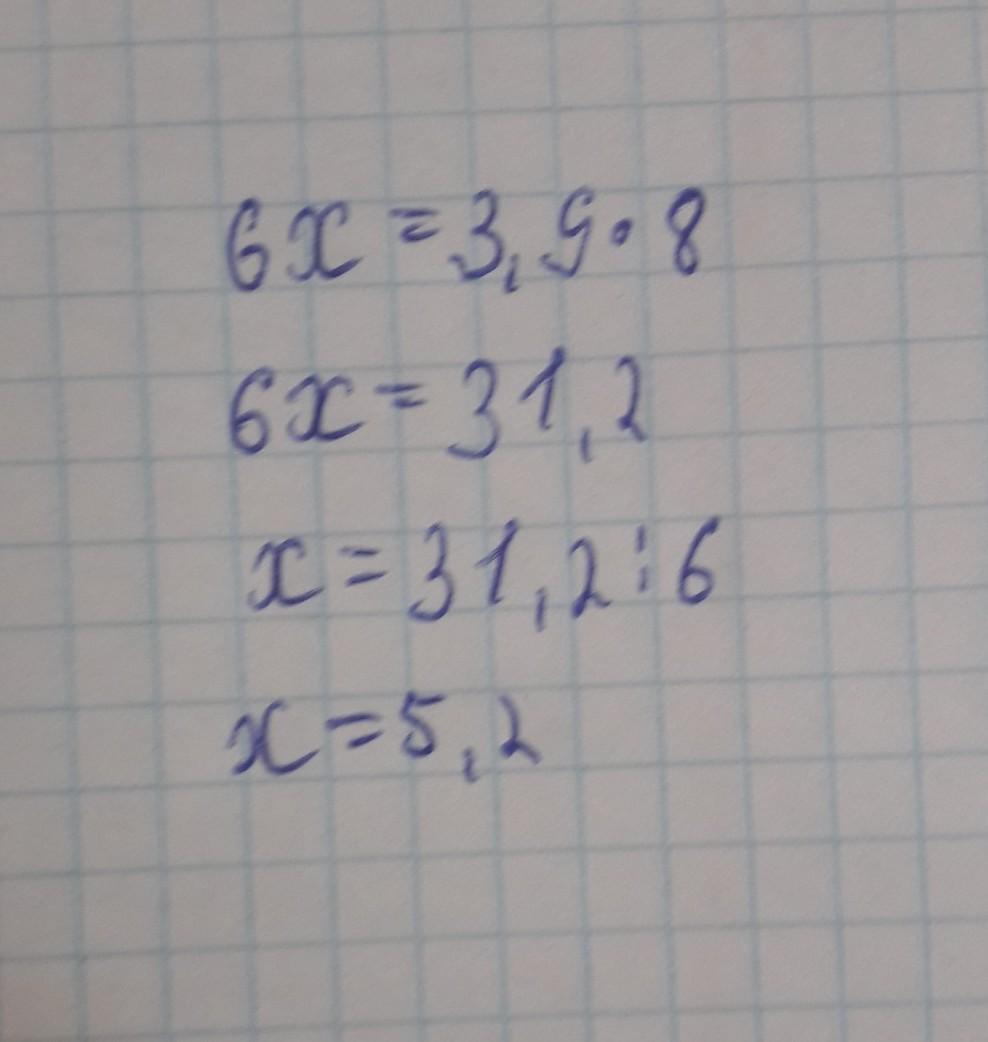 6x = 3,9 · 8
6x = 31,2
x = 31,2 : 6
x = 5,2